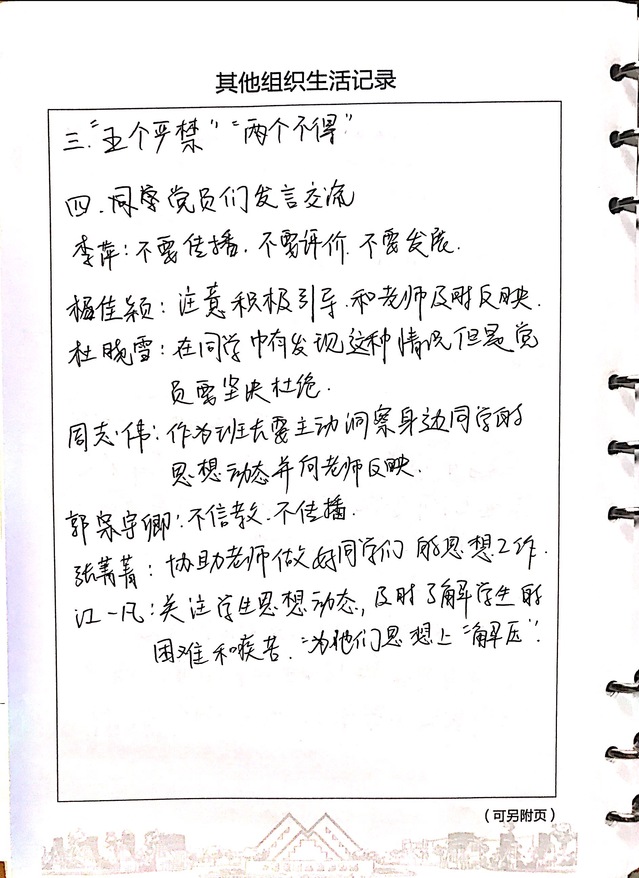 其他组织生活记录
三.“五个严禁”“两个不得”
四.同学党员们发言交流
李萍:不要传播.不要评价.不要发展.
杨佳颖:注意积极引导.和老师及时反映.
杜晓雪:在同学中有发现这种情况但是党
员要坚决杜绝.
周志伟:作为班长要主动洞察身边同学的
思想动态并向老师反映.
郭宗宇卿:不信教.不传播.
张菁菁:协助老师做好同学们的思想工作.
江一凡:关注学生思想动态,及时了解学生的
困难和疾苦.“为他们思想上“解压”.
(可另附页)